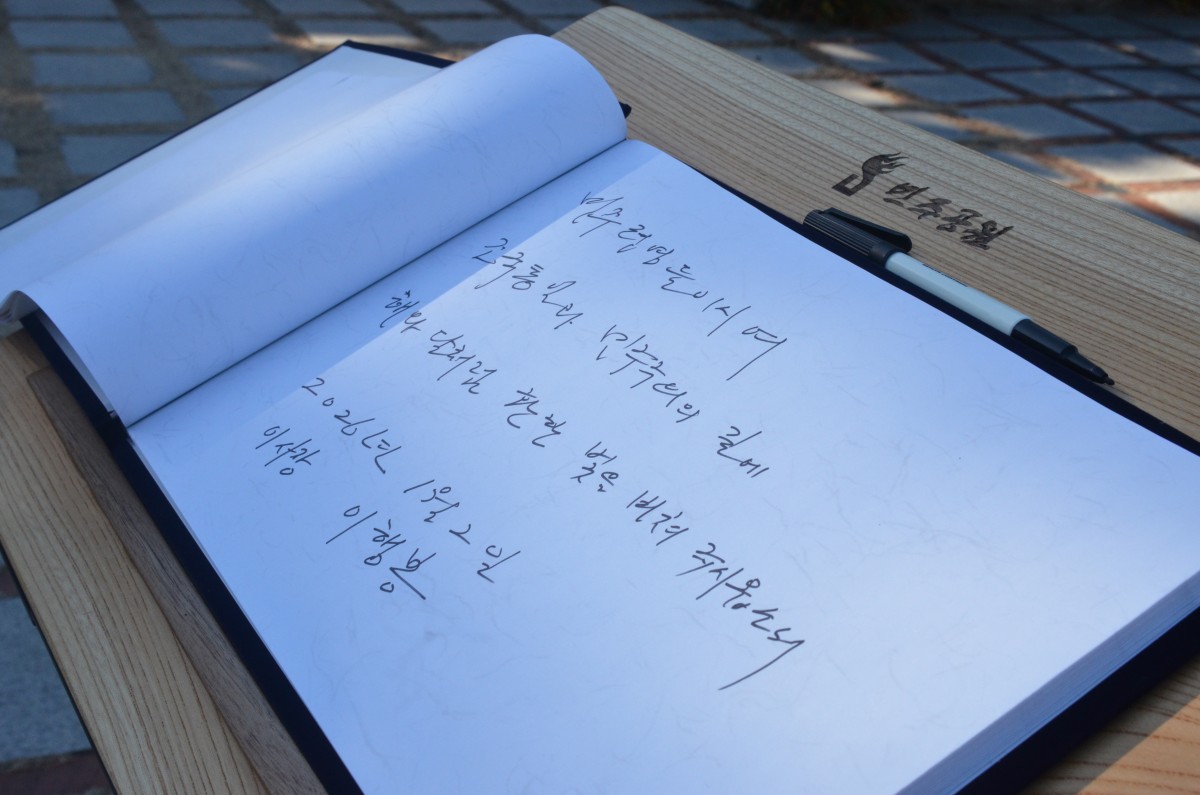 민주영령들이시여
조국통일과 민주주의의 길에
해와 달처럼 환한 빛을 비춰 주시옵소서
2026년 1월 2일
이사장
이행봉
민주공원